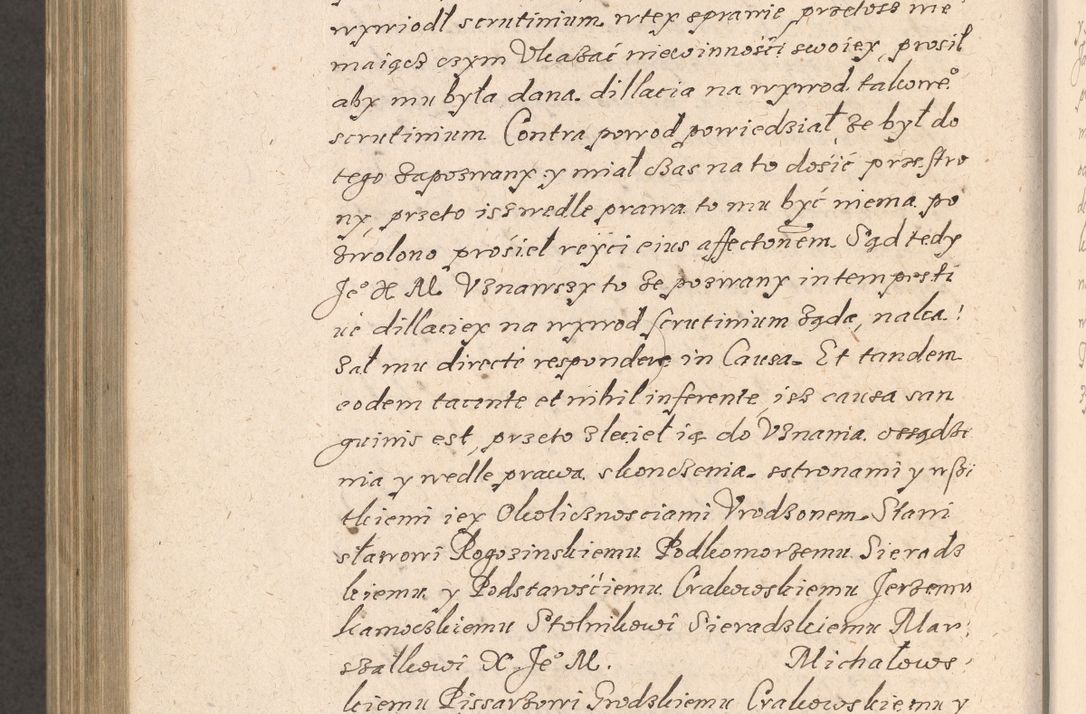 wywiodł scrutinium wtey sprawie przetosz nie
maiącz czym Ukazać niewinności swoiey, prosił
aby mu była dana dillacia na wywod takowe°
scrutinium Contra powod powiedział że był do
tego zapozwany y miał czas na to dośić przestro
ny, przeto iż wedle prawa to mu być niema po
zwolono prośieł reiici eius affectonem Sąd tedy
Je° X M Uznawszy to że pozwany intempesti
ue dillaciey na wywod scrutinium żąda, naka
zał mu directe respondere in Causa Et tandem
eodem tacente et nihil inferente, isz causa san
guinis est, przeto zleciel ią do Uznania ossądze
nia y wedle prawa skonczenia sstronami y wszi
tkiemi iey Okolicznosciami Urodzonem Stani
sławowi Rogozinskiemu Podkomorzemu Sieradz
kiemu y Podstarośćiemu Crakowskiemu Jerzemu
kamockiemu Stolnikowi Sieradzkiemu Mar
szałkowi X Je° M. Michałows
kiemu Pissarzowi Grodzkiemu Crakowskiemu y